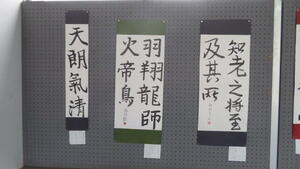 天朗氣清
羽翔龍師
火帝鳥
知老之将至
及其所